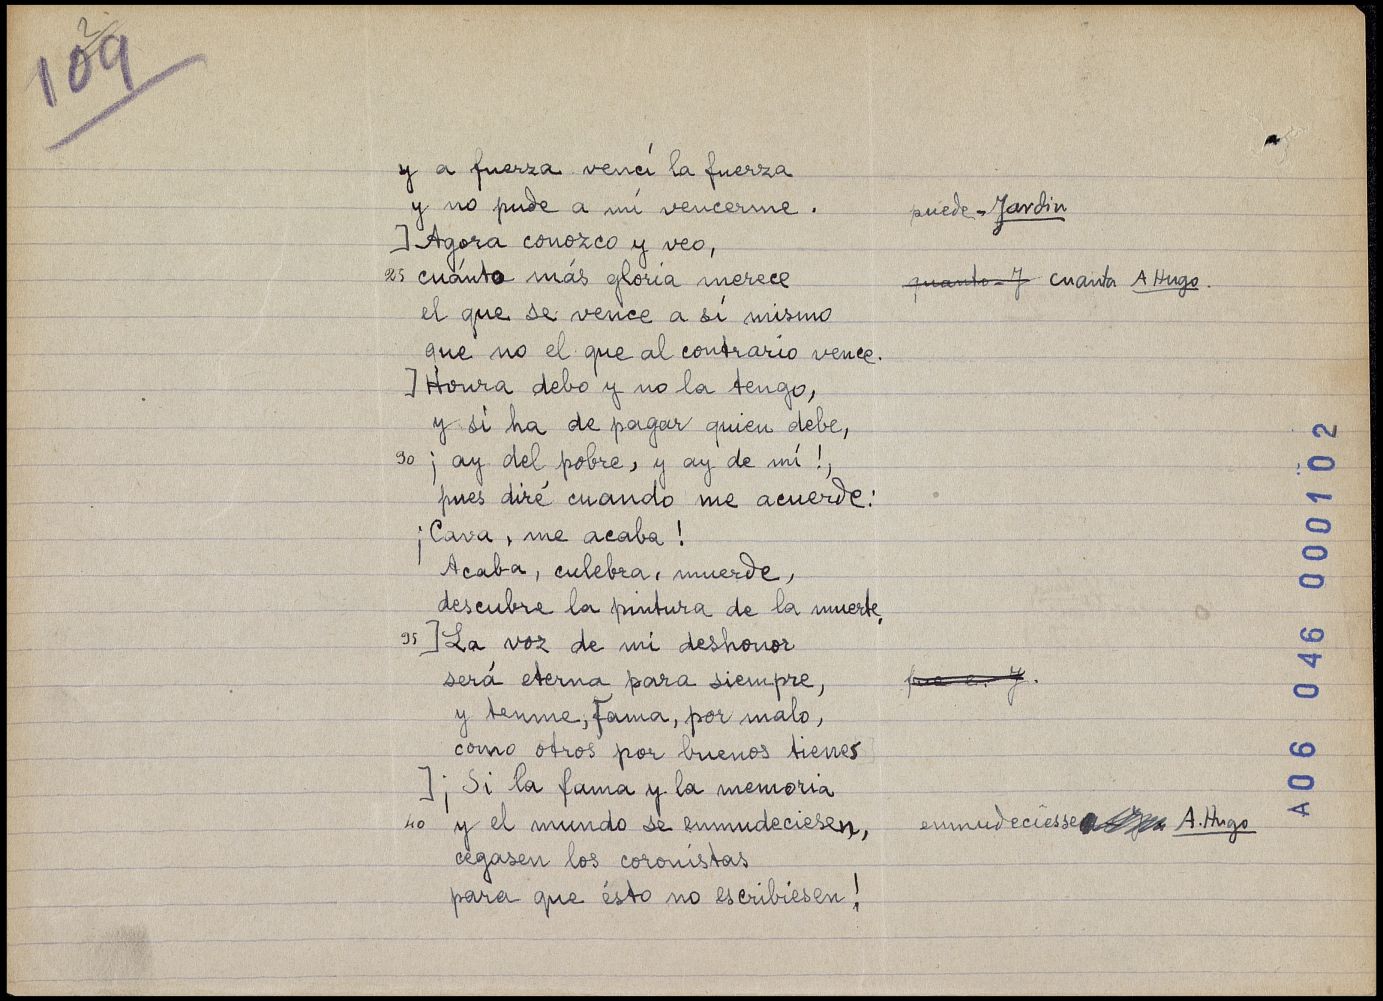 2
109
y a fuerza vencí la fuerza
y no pude a mí vencerme. puede - Jardin
] Agora conozco y veo,
25 cuánto más gloria merece quanto - J cuanta A Hugo.
el que se vence a sí mismo
que no el que al contrario vence.
] Honra debo y no la tengo,
y si ha de pagar quien debe,
30 ¡ay del pobre, y ay de mí!,
pues diré cuando me acuerde:
¡Cava, me acaba!
Acaba, culebra, muerde,
descubre la pintura de la muerte.
35 ] La voz de mi deshonor
será eterna para siempre,
y tenme, Fama, por malo,
como otros por buenos tienes
] ¡Si la fama y la memoria
40 y el mundo se enmudeciesen, enmudeciesse A. Hugo
cegasen los coronistas
para que ésto no escribiesen!
A06 046 000102